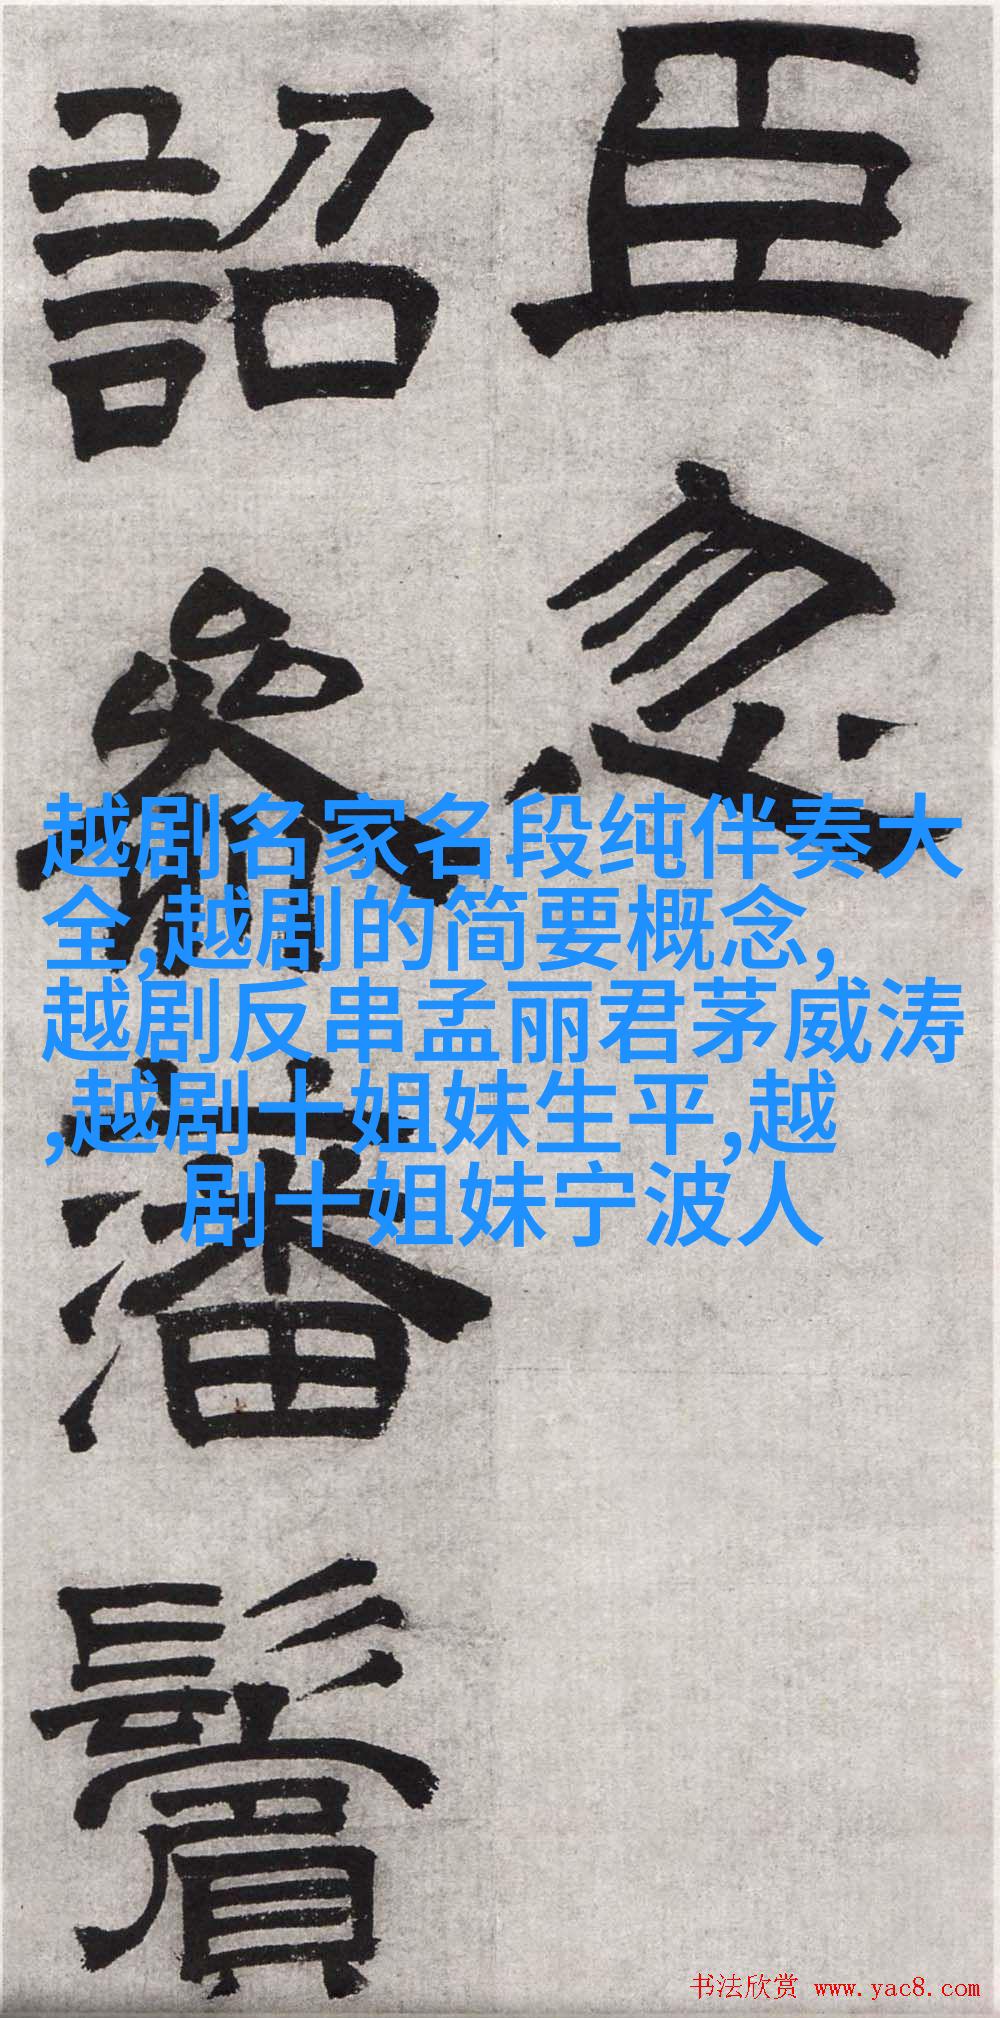 臣忽
詔參藩鬢
越剧名家名段纯伴奏大
全,越剧的简要概念,
越剧反串孟丽君茅威涛
,越剧十姐妹生平,越
剧十姐妹宁波人
书法欣赏 www.yac8.com